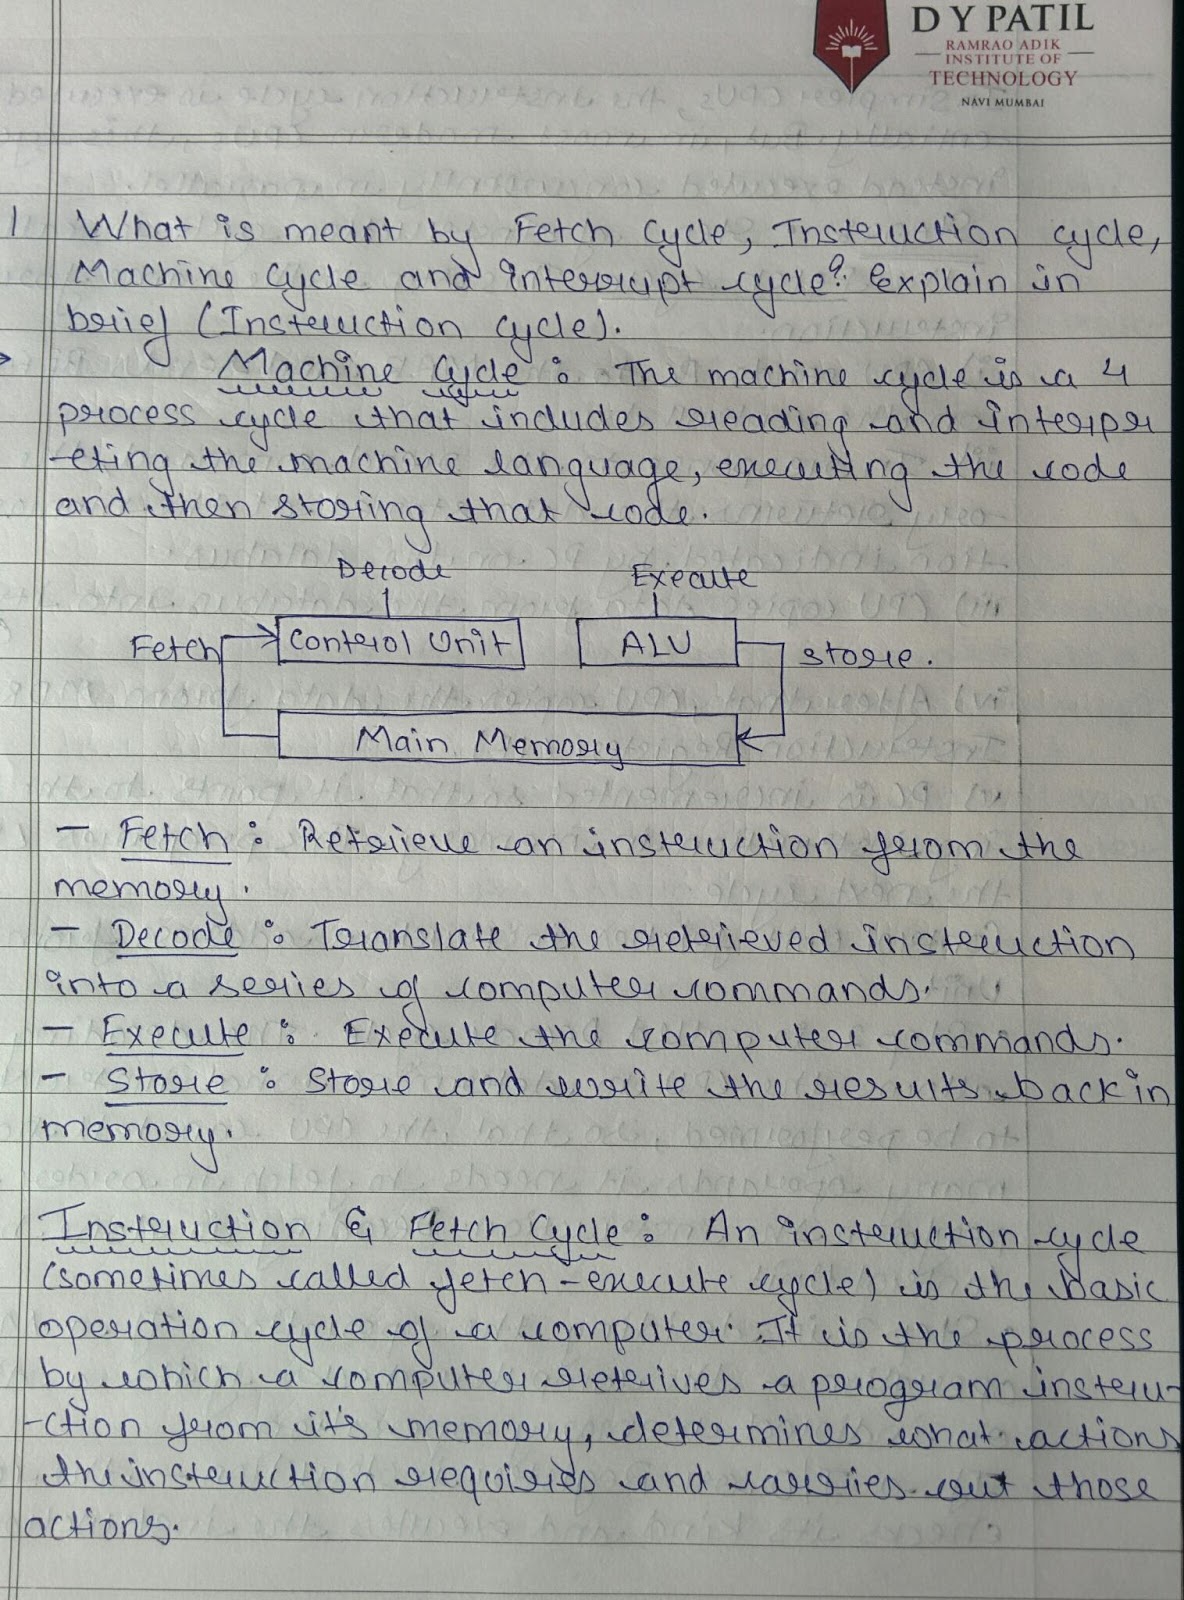 D Y PATIL
RAMRAO ADIK
INSTITUTE OF
TECHNOLOGY
NAVI MUMBAI
1 What is meant by Fetch Cycle, Instruction cycle,
Machine Cycle and interrupt cycle? Explain in
brief (Instruction cycle).
Machine Cycle : The machine cycle is a 4
process cycle that includes reading and interpr
-eting the machine language, executing the code
and then storing that code.
Decode Execute
Fetch Control Unit ALU store.
Main Memory
- Fetch : Retrieve an instruction from the
memory.
- Decode : Translate the retrieved instruction
into a series of computer commands.
- Execute : Execute the computer commands.
- Store : Store and write the results back in
memory.
Instruction & Fetch Cycle : An instruction cycle
(sometimes called fetch-execute cycle) is the basic
operation cycle of a computer. It is the process
by which a computer retrives a program instru-
-ction from it's memory, determines what actions
the instruction requires and carries out those
actions.